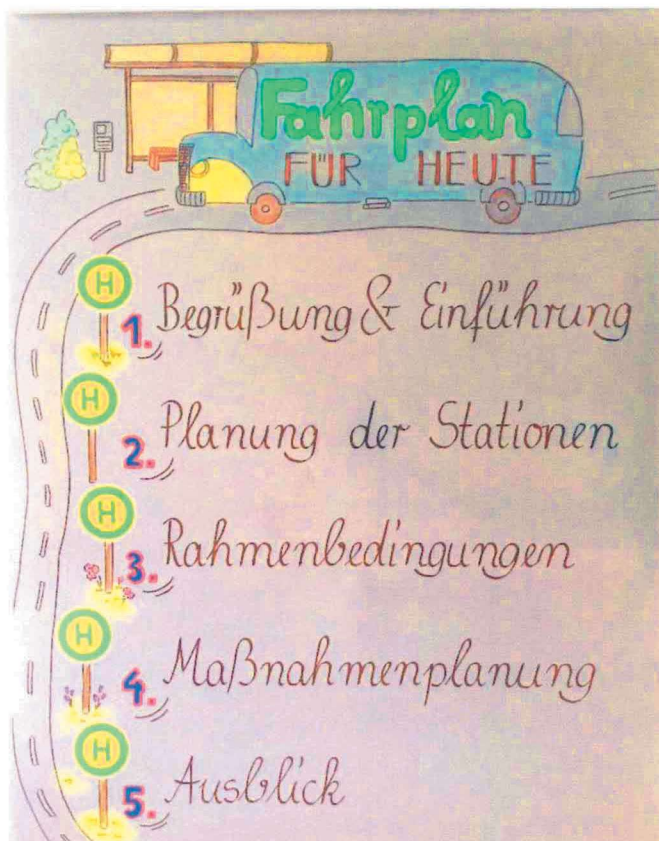 Fahrplan
FÜR HEUTE
H
1. Begrüßung & Einführung
H
2. Planung der Stationen
H
3. Rahmenbedingungen
H
4. Maßnahmenplanung
H
5. Ausblick